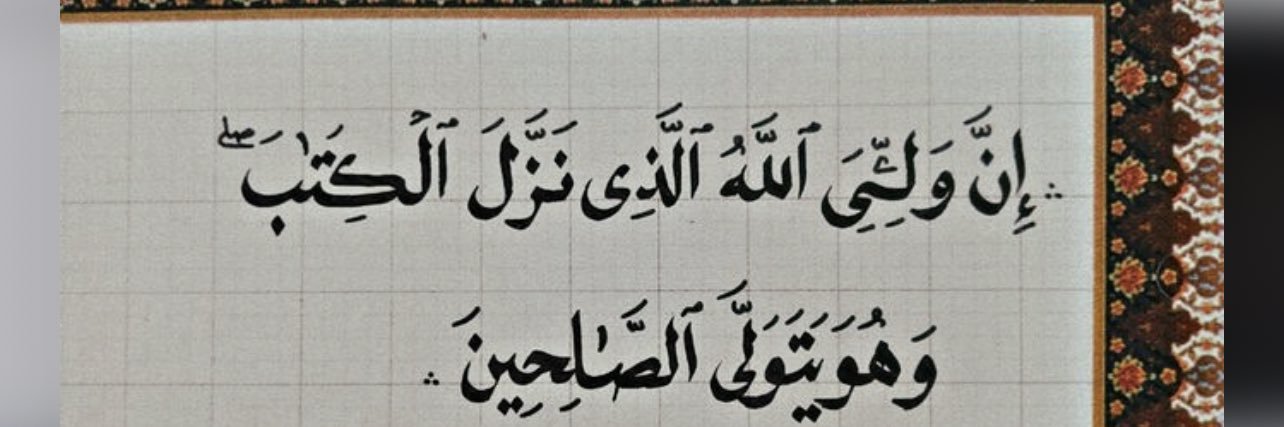 إِنَّ وَلِـِّۧيَ ٱللَّهُ ٱلَّذِى نَزَّلَ ٱلْكِتَٰبَ ۖ
وَهُوَ يَتَوَلَّى ٱلصَّٰلِحِينَ